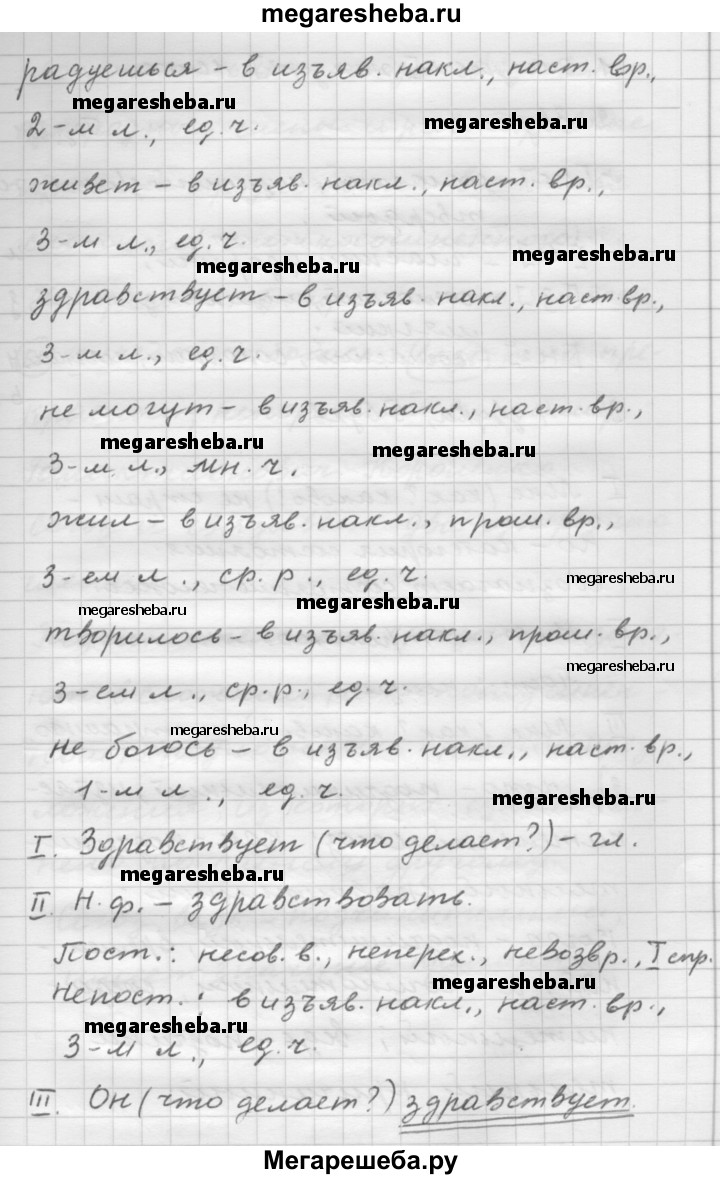 megaresheba.ru
радуешься – в изъяв. накл., наст. вр.,
megaresheba.ru
2-м л., ед. ч.
megaresheba.ru
живет – в изъяв. накл., наст. вр.,
3-м л., ед. ч.
megaresheba.ru
megaresheba.ru
здравствует – в изъяв. накл., наст. вр.,
3-м л., ед. ч.
не могут – в изъяв. накл., наст. вр.,
megaresheba.ru
megaresheba.ru
3-м л., мн. ч.
жил – в изъяв. накл., прош. вр.,
3-ем л., ср. р., ед. ч.
megaresheba.ru
megaresheba.ru
megaresheba.ru
творилось – в изъяв. накл., прош. вр.,
megaresheba.ru
3-ем л., ср. р., ед. ч.
megaresheba.ru
не боюсь – в изъяв. накл., наст. вр.,
1-м л., ед. ч.
megaresheba.ru
I. Здравствует (что делает?) – гл.
megaresheba.ru
II. Н. ф. – здравствовать.
Пост.: несов. в., неперех., невозвр., I спр.
megaresheba.ru
Непост.: в изъяв. накл., наст. вр.,
megaresheba.ru
3-м л., ед. ч.
III. Он (что делает?) здравствует.
Мегарешеба.ру